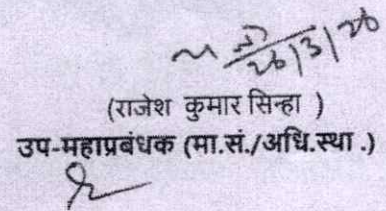 26/3/26
(राजेश कुमार सिन्हा )
उप-महाप्रबंधक (मा.सं./अधि.स्था .)